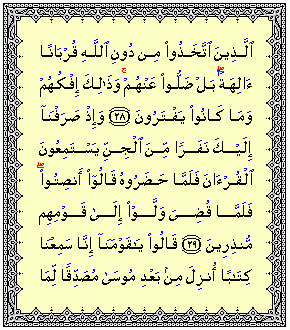 ٱلَّذِينَ ٱتَّخَذُوا۟ مِن دُونِ ٱللَّهِ قُرْبَانًا
ءَالِهَةًۢ ۖ بَلْ ضَلُّوا۟ عَنْهُمْ ۚ وَذَٰلِكَ إِفْكُهُمْ
وَمَا كَانُوا۟ يَفْتَرُونَ ﴿٢٨﴾ وَإِذْ صَرَفْنَآ
إِلَيْكَ نَفَرًا مِّنَ ٱلْجِنِّ يَسْتَمِعُونَ
ٱلْقُرْءَانَ فَلَمَّا حَضَرُوهُ قَالُوٓا۟ أَنصِتُوا۟ ۖ
فَلَمَّا قُضِىَ وَلَّوْا۟ إِلَىٰ قَوْمِهِم
مُّنذِرِينَ ﴿٢٩﴾ قَالُوا۟ يَٰقَوْمَنَآ إِنَّا سَمِعْنَا
كِتَٰبًا أُنزِلَ مِنۢ بَعْدِ مُوسَىٰ مُصَدِّقًا لِّمَا